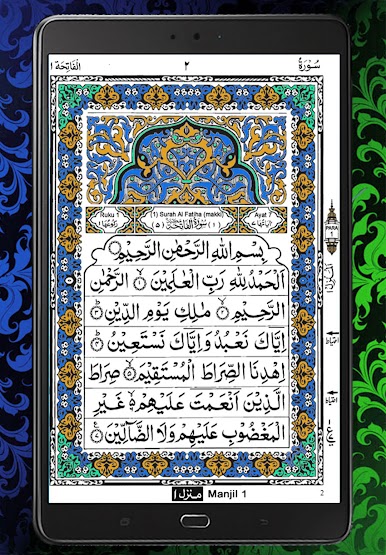 سُوْرَةُ ٢ الْفَاتِحَة ١
Ruku 1 (1) Surah Al Fatiha (makki) Ayat 7
رُكُوْعُهَا ١ (٥) سُوْرَةُ الْفَاتِحَةِ (١) اٰيَاتُهَا ٧
بِسْمِ اللّٰهِ الرَّحْمٰنِ الرَّحِيْمِ
اَلْحَمْدُ لِلّٰهِ رَبِّ الْعٰلَمِيْنَ ۙ﴿١﴾ الرَّحْمٰنِ
الرَّحِيْمِ ۙ﴿٢﴾ مٰلِكِ يَوْمِ الدِّيْنِ ؕ﴿٣﴾
اِيَّاكَ نَعْبُدُ وَاِيَّاكَ نَسْتَعِيْنُ ؕ﴿٤﴾
اِهْدِنَا الصِّرَاطَ الْمُسْتَقِيْمَ ۙ﴿٥﴾ صِرَاطَ
الَّذِيْنَ اَنْعَمْتَ عَلَيْهِمْ ۙ﴿٦﴾ غَيْرِ
الْمَغْضُوْبِ عَلَيْهِمْ وَلَا الضَّآلِّيْنَ ﴿٧﴾
PARA
1
منزل ١ Manjil 1 2